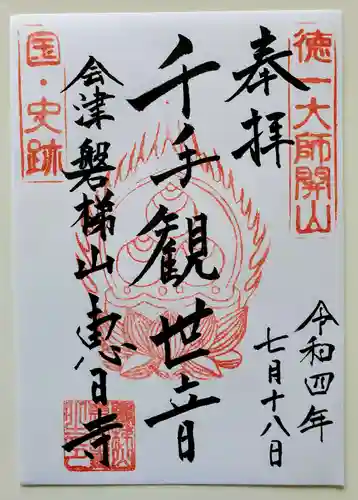 徳一大師開山
奉拝
令和四年
七月十八日
千手観世音
会津磐梯山恵日寺
国・史跡